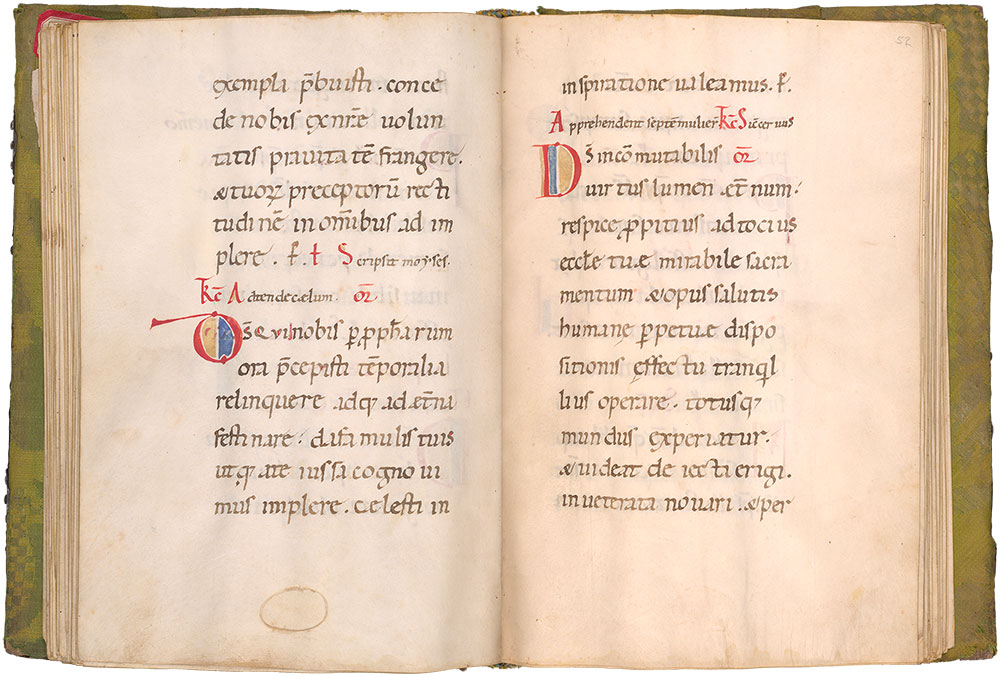 exempla p̄buisti · conce
de nobis exnr̄e uolun
tatis prauitatē frangere ·
& tuoꝝ preceptorū recti
tudinē in om̄ibus ad im
plere · F̄. t Scripsit moyses ·
Kc̄ Attende caelum · or̄
D̄s qui nobis p̱ p̱pħarum
ora p̄cepisti tēporalia
relinquere adq; ad aet̄na
festinare · da famulis tuis
ut q; a te iussa cognoui
mus implere · caelesti in
52
inspiratione ualeamus · F̄.
Apprehendent septē mulier Kc̄ Sic̄ ceruus
D̄s incōmutabilis or̄
uirtus lumen aet̄num ·
respice p̱pitius ad tocius
eccłe tuae mirabile sacra
mentum & opus salutis
humane p̱petuae dispo
sitionis effectu tranq̇l
lius operare · totusq;
mundus experiatur ·
& uideat deiecti erigi ·
inueterata nouari · & per